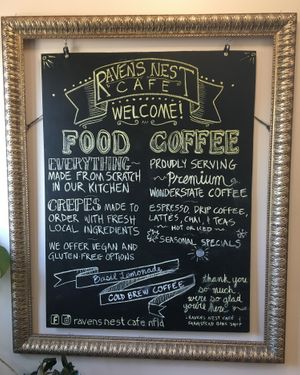 RAVENS NEST
CAFE
WELCOME!
FOOD
EVERYTHING~
MADE FROM SCRATCH
IN OUR KITCHEN
CREPES MADE TO
ORDER WITH FRESH
LOCAL INGREDIENTS
WE OFFER VEGAN AND
GLUTEN-FREE OPTIONS
COFFEE
PROUDLY SERVING
Premium
WONDERSTATE COFFEE
ESPRESSO, DRIP COFFEE,
LATTES, CHAI, & TEAS
HOT OR ICED
SEASONAL SPECIALS
Basil Lemonade
COLD BREW COFFEE
thank you
so much
we're so glad
you're here~
RAVENS NEST CAFE &
ravens nest cafe nfld